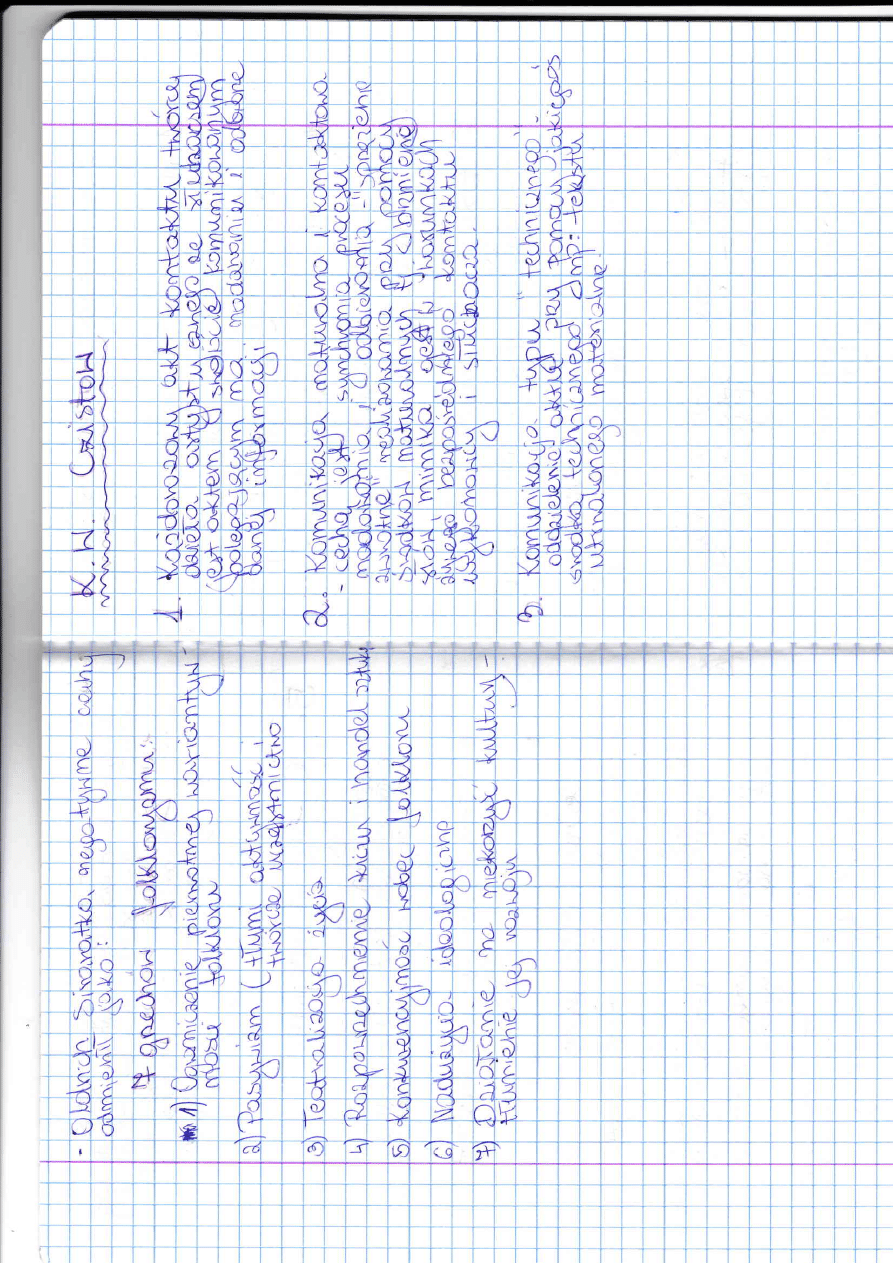 - Oldrich Sirovatka, negatywne cechy
odmienił jako:
7 grzechów folkloryzmu:
1) Ograniczenie pierwotnej wariantyw-
ności folkloru
2) Pasywizm (tłumi aktywność i
twórcze uczestnictwo
3) Teatralizacja życia
4) Rozpowszechnienie kiczu i handel sztuką
5) Konkurencyjność wobec folkloru
6) Nadużycia ideologiczne
7) Działanie na niekorzyść kultury -
tłumienie jej rozwoju
K.W. Czistow
1. Każdorazowy akt kontaktu twórcy
dzieła artystycznego ze słuchaczem
jest aktem swoiście komunikowanym
polegającym na nadawaniu i odbiorze
danej informacji.
2. Komunikacja naturalna i kontaktowa
- cechą jest synchronia procesu
nadawania i odbierania - "sprzężenie
zwrotne" realizowania przy pomocy
środków naturalnych tj (brzmienie
słów, mimika, gest w warunkach
żywego bezpośredniego kontaktu
wykonawcy i słuchacza.
3. Komunikacja typu "technicznego":
oddzielenie aktu przy pomocy jakiegoś
środka technicznego np: tekstu
utrwalonego materialnie.